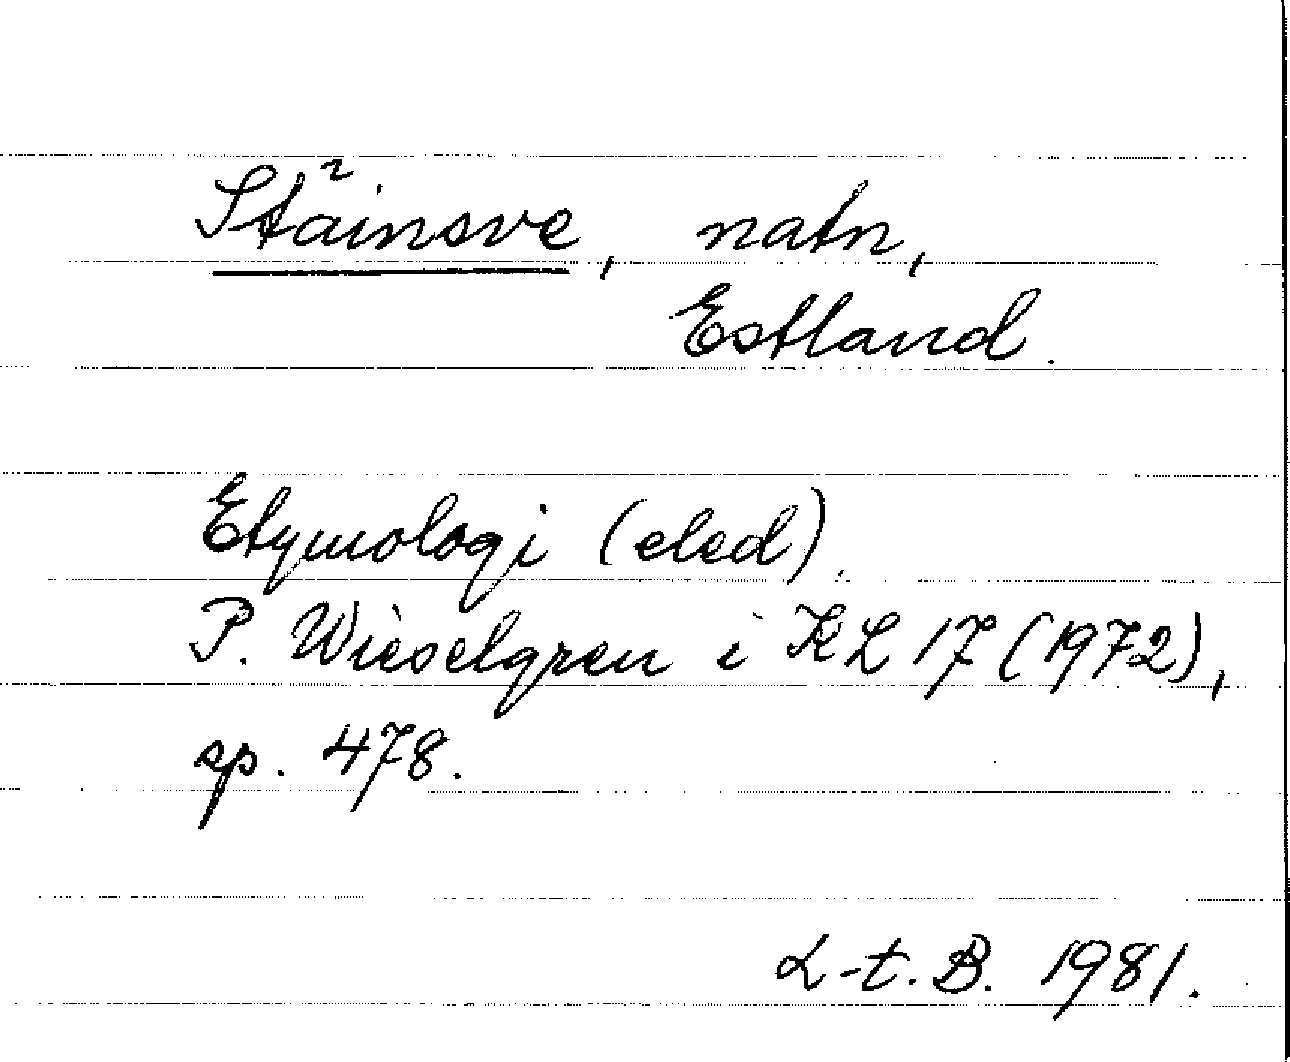 Stãinsve, natn,
Estland.
Etymologi (eled).
P. Wieselgren i KL 17 (1972),
sp. 478.
L-t. B. 1981.